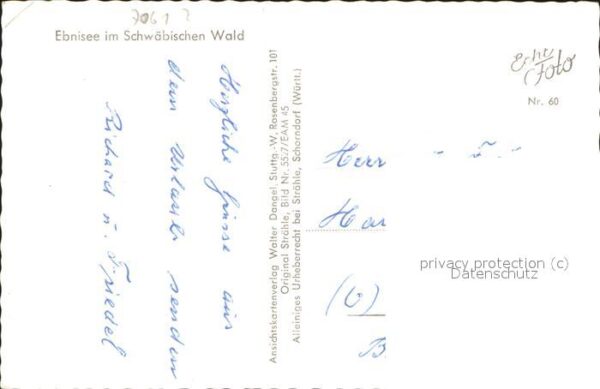 7061 ?
Ebnisee im Schwäbischen Wald
Herzliche Grüsse aus
dem Urlaub senden
Richard u. Friedel
Ansichtskartenverlag Walter Dangel, Stuttg.-W, Rosenbergstr. 101
Original Strähle, Bild Nr. 55:7/EAM 45
Alleiniges Urheberrecht bei Strähle, Schorndorf (Württ.)
Echt Foto
Nr. 60
Herr
Har
privacy protection (c)
Datenschutz
B